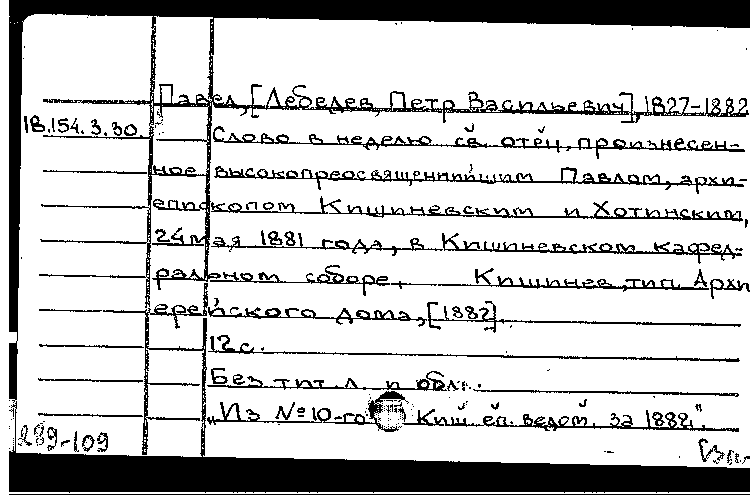 Павел, [Лебедев, Петр Васильевич], 1827-1882
18.154.3.30. Слово в неделю св. отец, произнесен-
ное высокопреосвященнийшим Павлом, архи-
епископом Кишиневским и Хотинским,
24 мая 1881 года, в Кишиневском кафед-
ральном соборе. Кишинев, тип. Архи
ерейского дома, [1882].
12 с.
Без тит. л. и обл.
„Из № 10-го Киш. еп. ведом. за 1882".
289-109